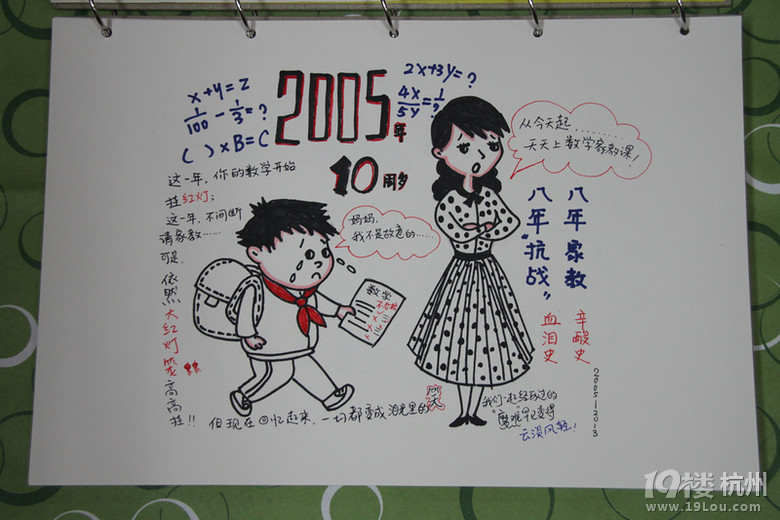 2005年
10周岁
x+y=z
1/100 - 1/3 = ?
( )×B=C
2x+3y=?
4x/5y=1/?
这一年,你的数学开始
挂红灯;
这一年,不间断
请家教……
可是,
依然大红灯笼高高挂!!
妈妈,
我不是故意的……
数学
不及格
从今天起………
天天上数学家教课!
八年家教
八年"抗战"
辛酸史
血泪史
2005-2013
但现在回忆起来,一切都变成泪光里的笑
我们一起经历过的
"磨难"早已变得
云淡风轻!
19楼 杭州
www.19Lou.com